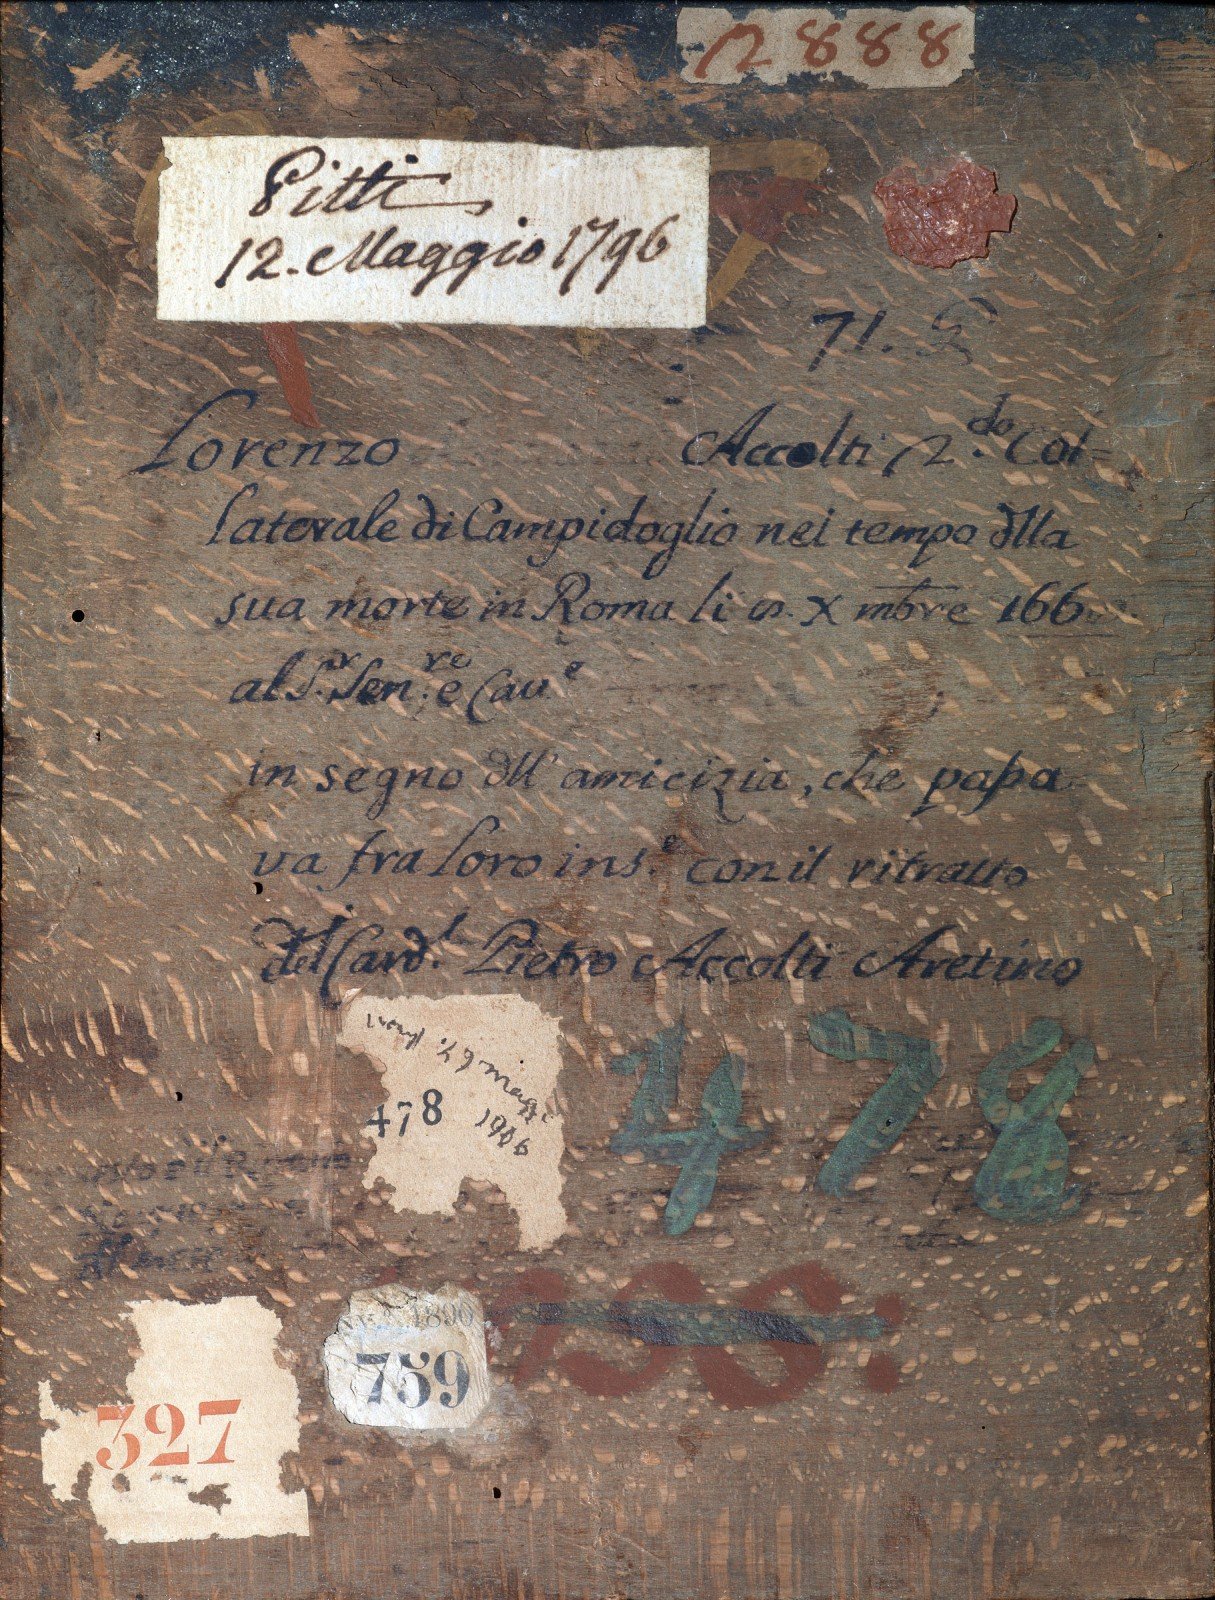 2888
Pitti
12. Maggio 1796
71.
Lorenzo Accolti 2.do Col=
laterale di Campidoglio nel tempo dlla
sua morte in Roma li X mbre 166
al S.r Sen.re e Cau.e
in segno dll' amicizia, che passa
va fra loro ins.e con il ritratto
del Card.l Pietro Accolti Aretino
9 maggi
1906
478
478
1890
759
327